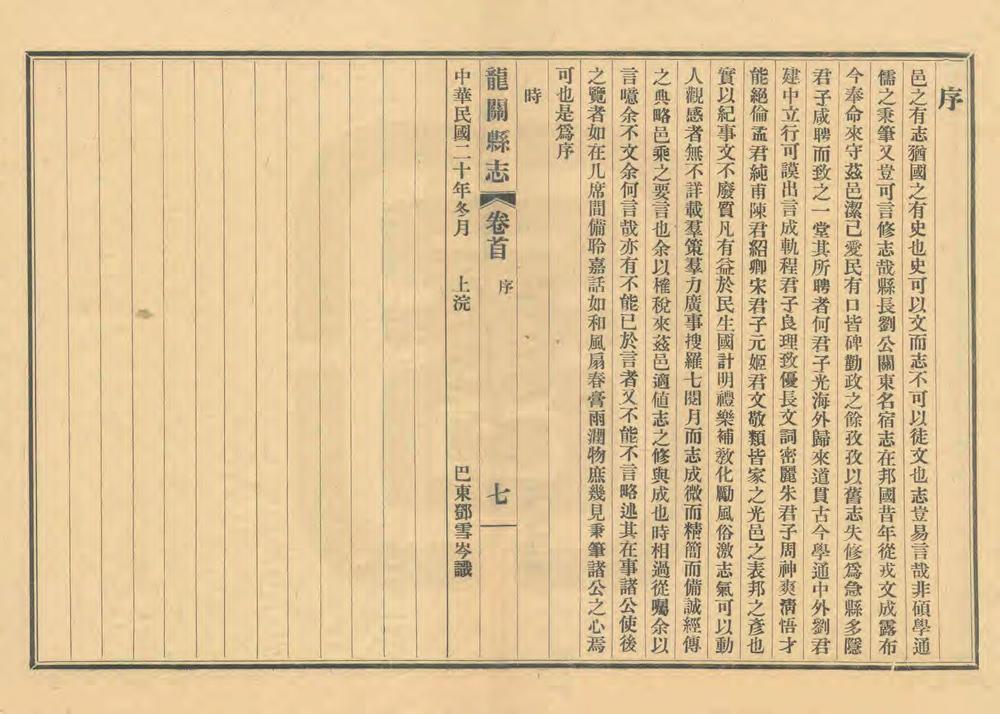 序
邑之有志猶國之有史也史可以文而志不可以徒文也志豈易言哉非碩學通
儒之秉筆又豈可言修志哉縣長劉公關東名宿志在邦國昔年從戎文成露布
今奉命來守茲邑潔己愛民有口皆碑勤政之餘孜孜以舊志失修爲急縣多隱
君子咸聘而致之一堂其所聘者何君子光海外歸來道貫古今學通中外劉君
建中立行可謨出言成軌程君子良理致優長文詞密麗朱君子周神爽清悟才
能絕倫孟君純甫陳君紹卿宋君子元姬君文敬類皆家之光邑之表邦之彥也
實以紀事文不廢質凡有益於民生國計明禮樂補敎化勵風俗激志氣可以動
人觀感者無不詳載羣策羣力廣事搜羅七閱月而志成微而精簡而備誠經傳
之典略邑乘之要言也余以榷稅來茲邑適值志之修與成也時相過從囑余以
言噫余不文余何言哉亦有不能已於言者又不能不言略述其在事諸公使後
之覽者如在几席間備聆嘉話如和風扇春膏雨潤物庶幾見秉筆諸公之心焉
可也是爲序
時
龍關縣志 卷首 序 七
中華民國二十年冬月 上浣 巴東鄧雪岑識